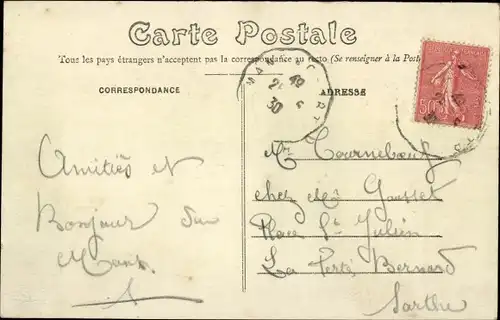 Carte Postale
Tous les pays étrangers n'acceptent pas la correspondance au recto (Se renseigner à la Poste
CORRESPONDANCE
ADRESSE
50
Amitiés et
Bonjour du
Mans.
Mr Tournebœuf
chez Mr Gousset
Place St Julien
La Ferté Bernard
Sarthe